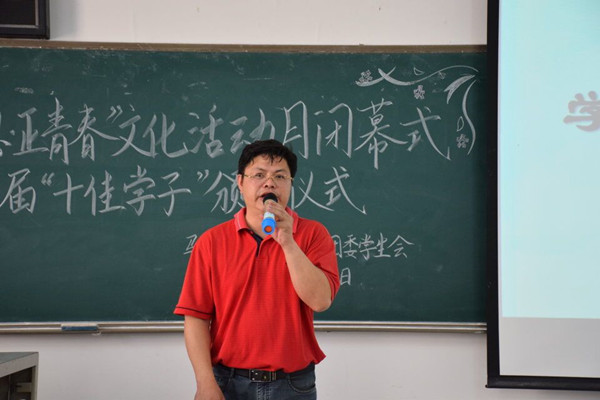 青春"文化活动月闭幕式
届"十佳学子"颁 仪式
团委学生会
日
学